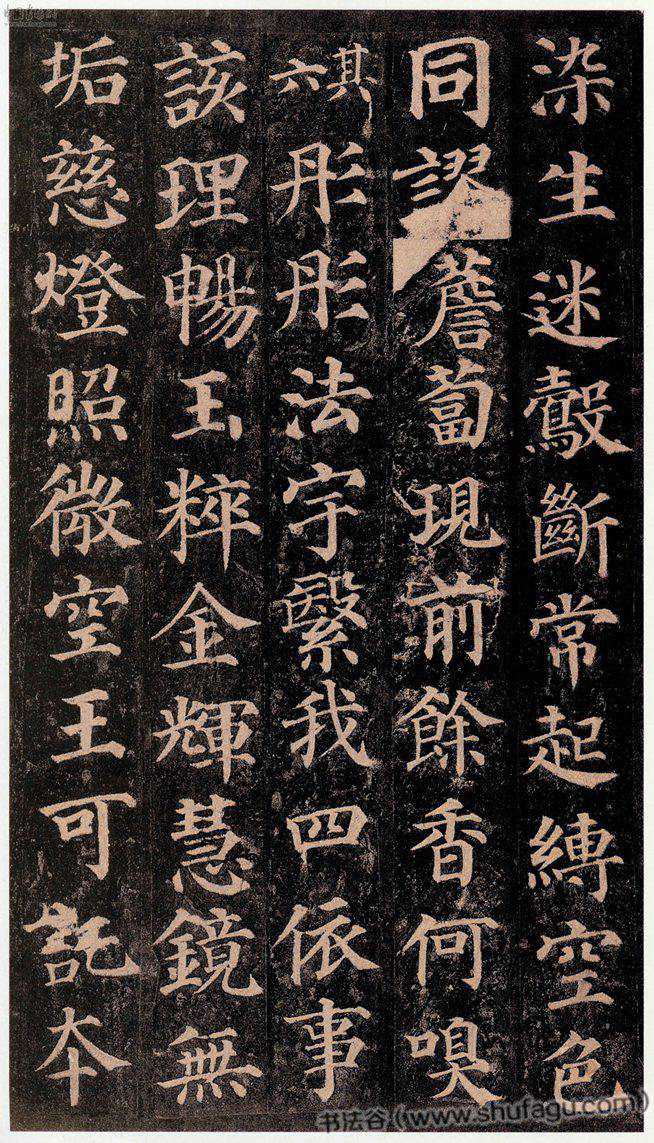 染生迷鷇斷常起縛空色
同謬薝蔔現前餘香何嗅
其六彤彤法宇繄我四依事
該理暢玉粹金輝慧鏡無
垢慈燈照微空王可託本
书法谷(www.shufagu.com)